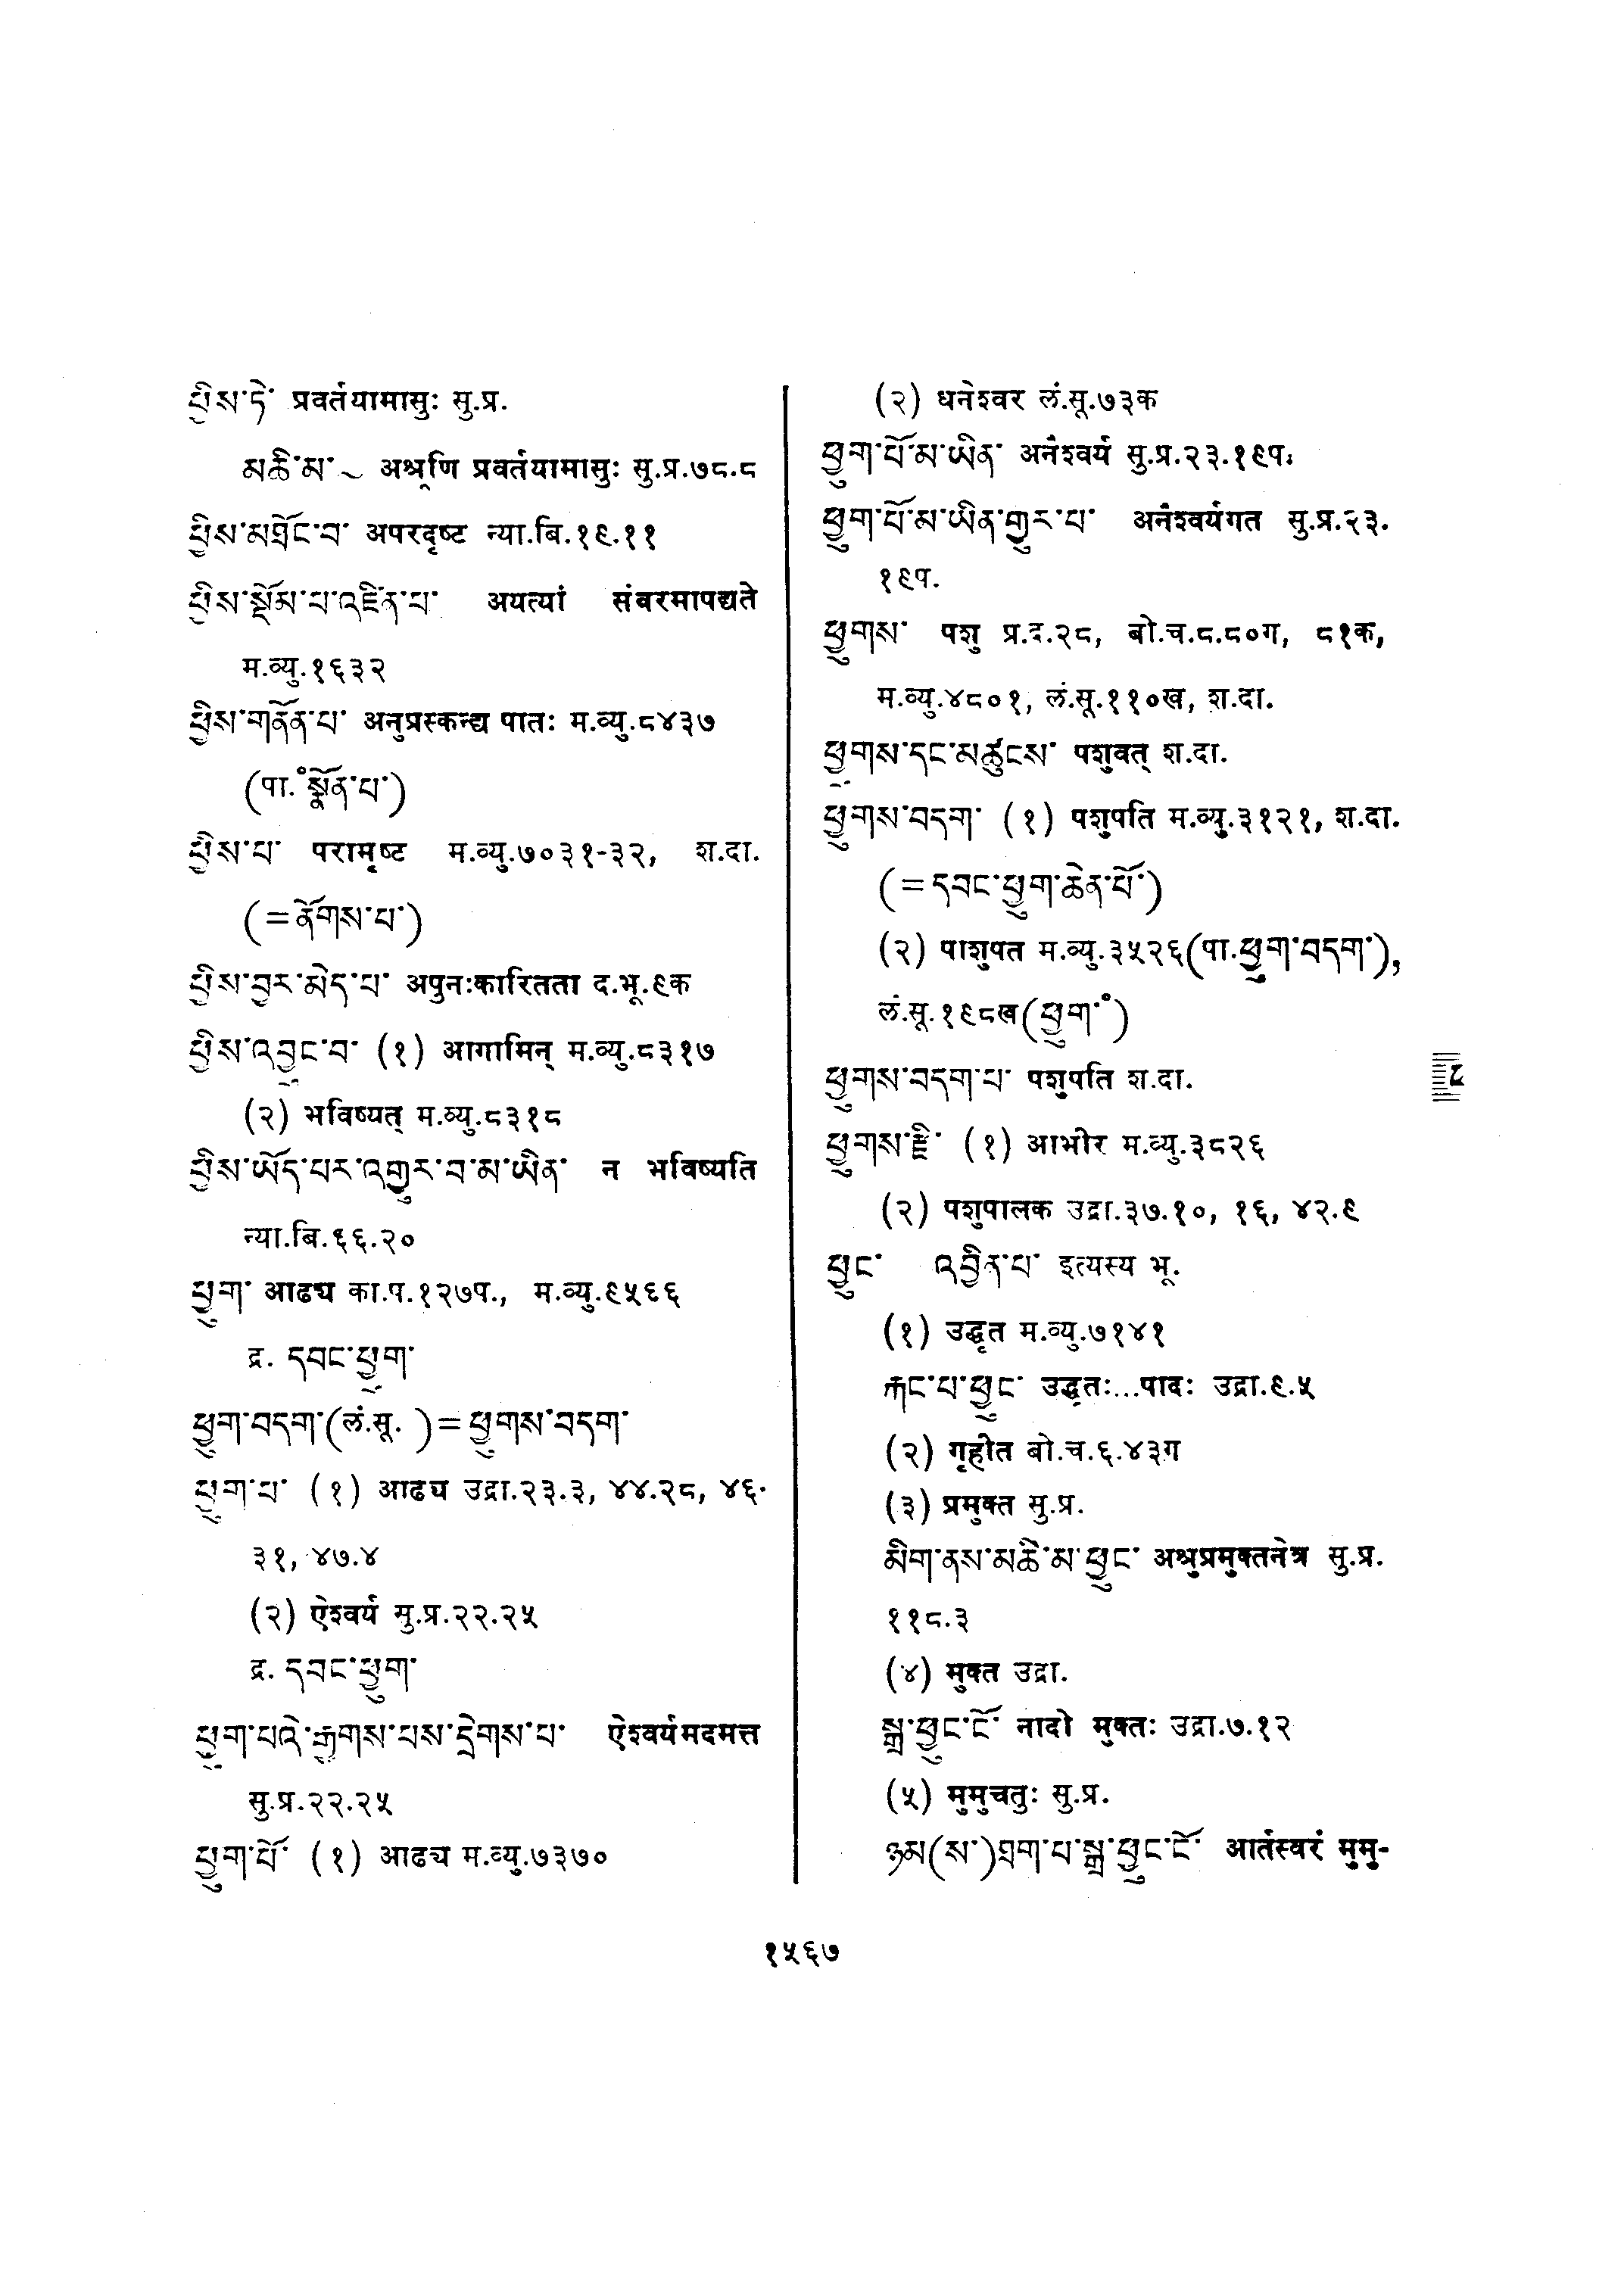 ཕྱིས་ཏེ་ प्रवर्तयामासुः सु.प्र.
མཆི་མ་ ~ अश्रूणि प्रवर्तयामासुः सु.प्र.७८.८
ཕྱིས་མཐོང་བ་ अपरदृष्ट न्या.बि.१९.११
ཕྱིས་སྡོམ་པ་འཛིན་པ་ अयत्यां संवरमापद्यते
म.व्यु.१६३२
ཕྱིས་གནོན་པ་ अनुप्रस्कन्द्य पातः म.व्यु.८४३७
(पा.°སྣོན་པ་)
ཕྱིས་པ་ परामृष्ट म.व्यु.७०३१-३२, श.दा.
(=ནོགས་པ་)
ཕྱིས་བྱར་མེད་པ་ अपुनःकारितता द.भू.९क
ཕྱིས་འབྱུང་བ་ (१) आगामिन् म.व्यु.८३१७
(२) भविष्यत् म.व्यु.८३१८
ཕྱིས་ཡོད་པར་འགྱུར་བ་མ་ཡིན་ न भविष्यति
न्या.बि.६६.२०
ཕྱུག་ आढ्य का.प.१२७प., म.व्यु.९५६६
द्र. དབང་ཕྱུག་
ཕྱུག་བདག་(लं.सू. )=ཕྱུགས་བདག་
ཕྱུག་པ་ (१) आढ्य उद्रा.२३.३, ४४.२८, ४६.
३१, ४७.४
(२) ऐश्वर्य सु.प्र.२२.२५
द्र. དབང་ཕྱུག་
ཕྱུག་པའི་རྒྱགས་པས་དྲེགས་པ་ ऐश्वर्यमदमत्त
सु.प्र.२२.२५
ཕྱུག་པོ་ (१) आढ्य म.व्यु.७३७०
(२) धनेश्वर लं.सू.७३क
ཕྱུག་པོ་མ་ཡིན་ अनैश्वर्य सु.प्र.२३.१९प.
ཕྱུག་པོ་མ་ཡིན་གྱུར་པ་ अनैश्वर्यगत सु.प्र.२३.
१९प.
ཕྱུགས་ पशु प्र.द.२८, बो.च.८.८०ग, ८१क,
म.व्यु.४८०१, लं.सू.११०ख, श.दा.
ཕྱུགས་དང་མཚུངས་ पशुवत् श.दा.
ཕྱུགས་བདག་ (१) पशुपति म.व्यु.३१२१, श.दा.
(=དབང་ཕྱུག་ཆེན་པོ་)
(२) पाशुपत म.व्यु.३५२६(पा.ཕྱུག་བདག་),
लं.सू.१९८ख(ཕྱུག་°)
ཕྱུགས་བདག་པ་ पशुपति श.दा.
ཕྱུགས་རྫི་ (१) आभीर म.व्यु.३८२६
(२) पशुपालक उद्रा.३७.१०, १६, ४२.९
ཕྱུང་ འབྱིན་པ་ इत्यस्य भू.
(१) उद्धृत म.व्यु.७१४१
རྐང་པ་ཕྱུང་ उद्धृतः...पादः उद्रा.९.५
(२) गृहीत बो.च.६.४३ग
(३) प्रमुक्त सु.प्र.
མིག་ནས་མཆི་མ་ཕྱུང་ अश्रुप्रमुक्तनेत्र सु.प्र.
११८.३
(४) मुक्त उद्रा.
སྒྲ་ཕྱུང་ངོ་ नादो मुक्तः उद्रा.७.१२
(५) मुमुचतुः सु.प्र.
ཉམ(ས་)ཐག་པ་སྒྲ་ཕྱུང་ངོ་ आर्तस्वरं मुमु-
१५६७